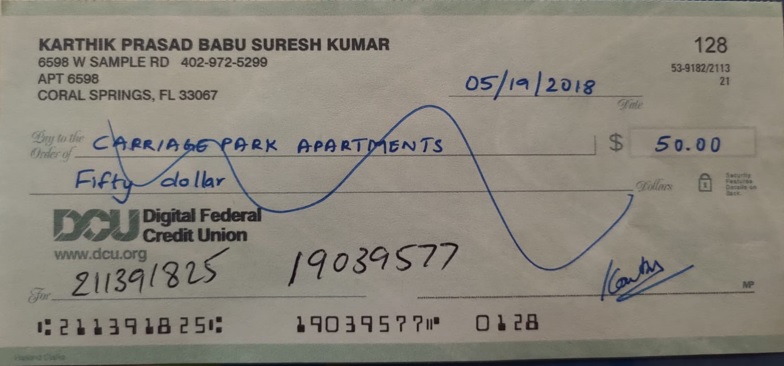 KARTHIK PRASAD BABU SURESH KUMAR
6598 W SAMPLE RD 402-972-5299
APT 6598
CORAL SPRINGS, FL 33067
128
53-9182/2113
21
05/19/2018
Date
Pay to the
Order of CARRIAGE PARK APARTMENTS $ 50.00
Fifty dollar Dollars
Security
Features
Details on
Back
DCU Digital Federal
Credit Union
www.dcu.org
For 211391825 19039577
MP
211391825 19039577 0128